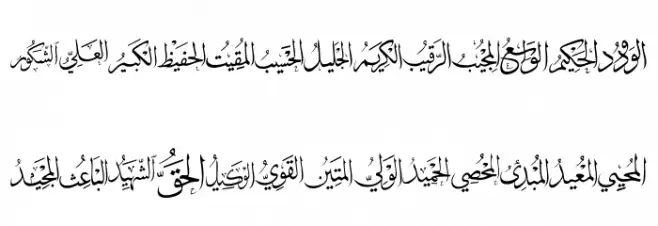 الودود الحكيم الواسع المجيب الرقيب الكريم الجليل الحسيب المقيت الحفيظ الكبير العلي الشكور
المحيي المعيد المبدئ المحصي الحميد الولي المتين القوي الوكيل الحق الشهيد الباعث المجيد